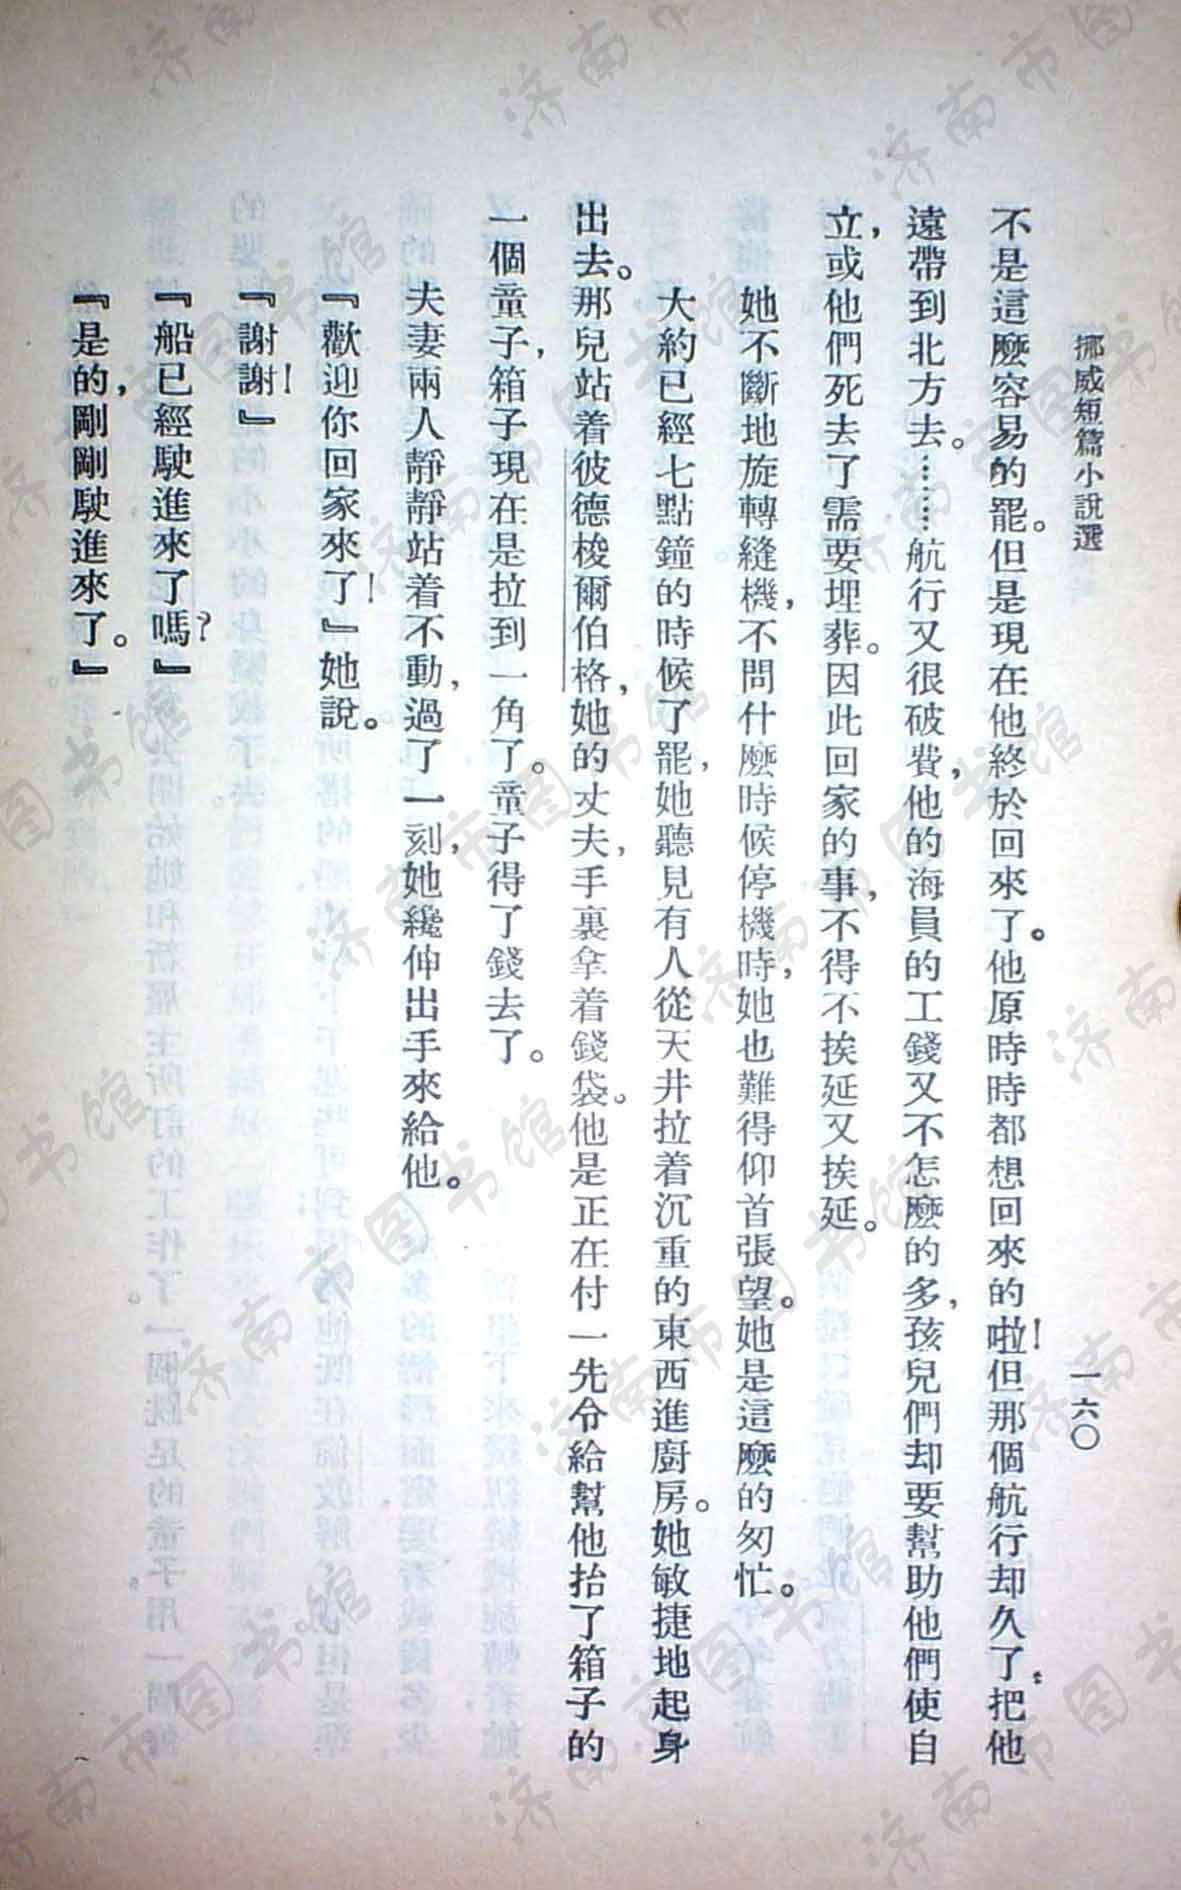 挪威短篇小說選
一六〇
不是這麼容易的罷。但是現在他終於回來了。他原時時都想回來的啦！但那個航行却久了：把他
遠帶到北方去。……航行又很破費，他的海員的工錢又不怎麼的多，孩兒們却要幫助他們使自
立，或他們死去了需要埋葬。因此回家的事，不得不挨延又挨延。
她不斷地旋轉縫機，不問什麼時候停機時，她也難得仰首張望。她是這麼的匆忙。
大約已經七點鐘的時候了罷，她聽見有人從天井拉着沉重的東西進廚房。她敏捷地起身
出去。那兒站着彼德梭爾伯格，她的丈夫，手裏拿着錢袋。他是正在付一先令給幫他抬了箱子的
一個童子，箱子現在是拉到一角了。童子得了錢去了。
夫妻兩人靜靜站着不動，過了一刻，她纔伸出手來給他。
『歡迎你回家來了！』她說。
『謝謝！』
『船已經駛進來了嗎？』
『是的，剛剛駛進來了。』
济南市图书馆